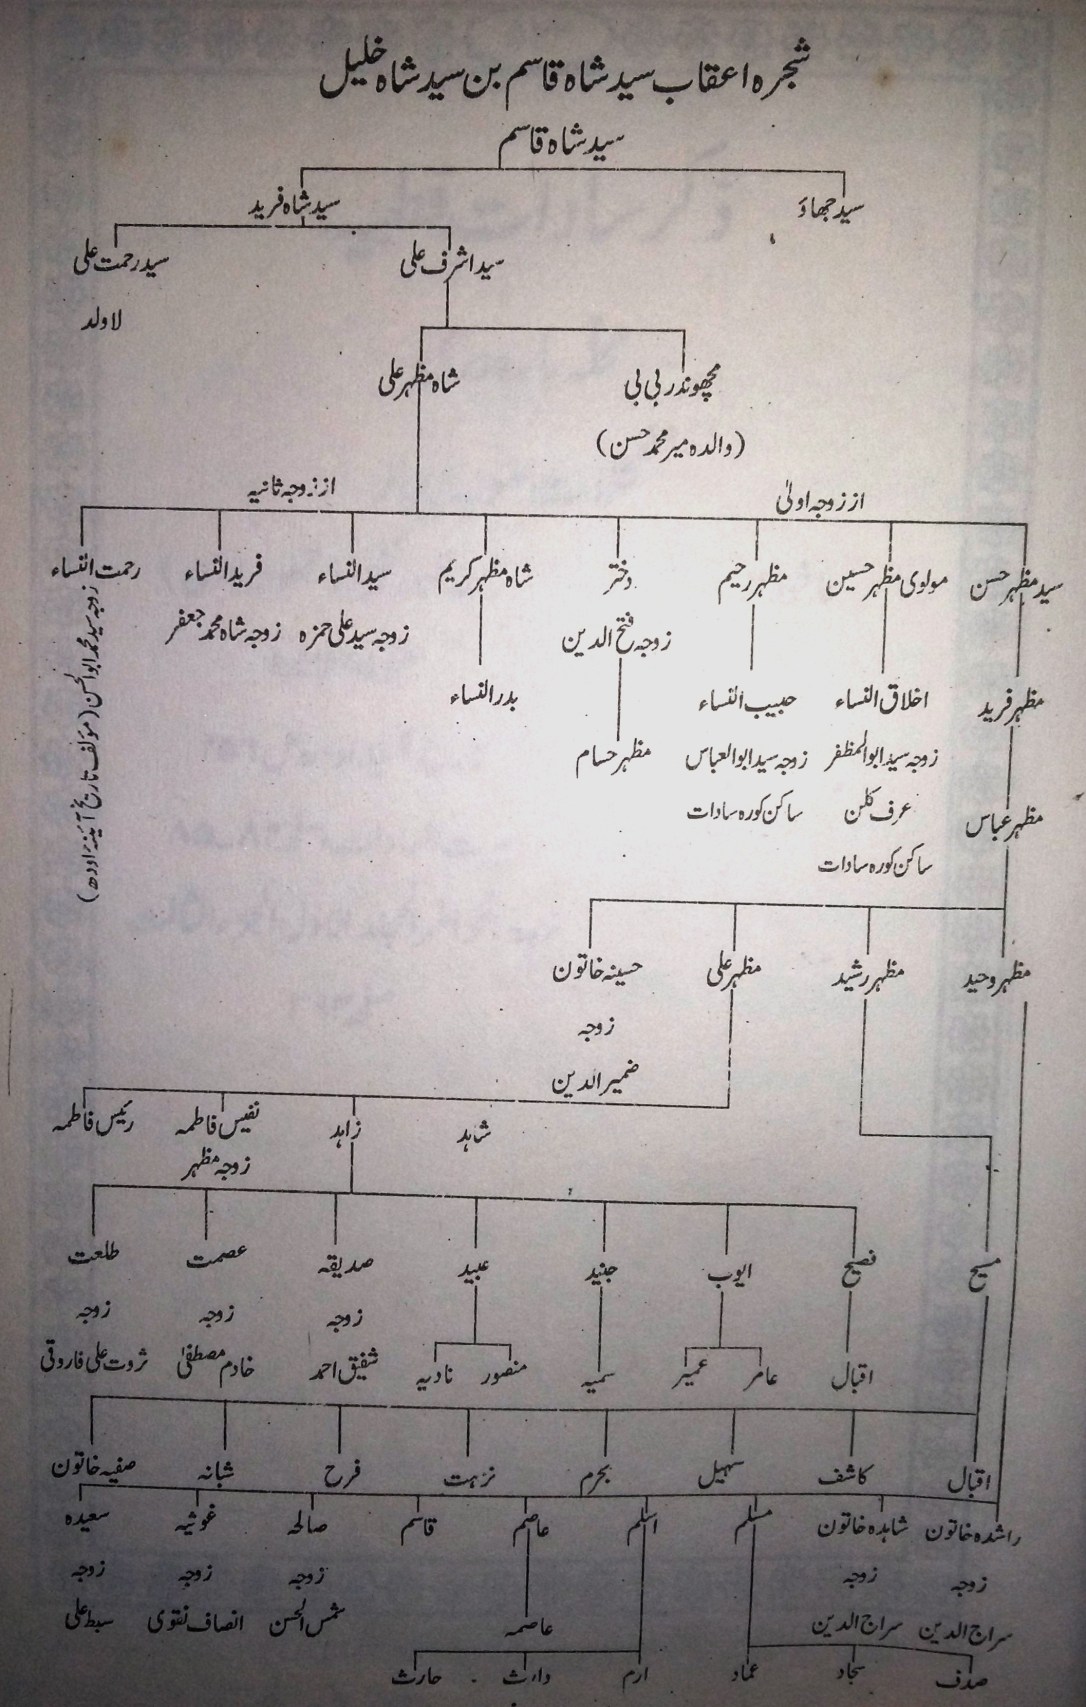 شجرہ اعقاب سید شاہ قاسم بن سید شاہ خلیل
سید شاہ قاسم
سید جھاؤ سید شاہ فرید
سید اشرف علی سید رحمت علی
لاولد
مچھوندر بی بی شاہ مظہر علی
(والدہ میر محمد حسن)
از زوجہ اولیٰ از زوجہ ثانیہ
سید مظہر حسن مولوی مظہر حسین مظہر رحیم دختر شاہ مظہر کریم سید النساء فرید النساء رحمت النساء
زوجہ فتح الدین زوجہ سید علی حمزہ زوجہ شاہ محمد جعفر
زوجہ سید محمد ابوالحسن (مؤلف تاریخ آئینۂ اودھ)
مظہر فرید اخلاق النساء حبیب النساء بدر النساء
زوجہ سید ابوالمظفر زوجہ سید ابوالعباس مظہر حسام
مظہر عباس عرف کلن ساکن کورہ سادات
ساکن کورہ سادات
مظہر وحید مظہر رشید مظہر علی حسینہ خاتون
زوجہ
ضمیر الدین
شاہد زاہد نفیس فاطمہ رئیس فاطمہ
زوجہ مظہر
مسیح فصیح ایوب جنید عبید صدیقہ عصمت طلعت
زوجہ زوجہ زوجہ
اقبال عامر عمیر سمیہ منصور نادیہ شفیق احمد خادم مصطفیٰ ثروت علی فاروقی
اقبال کاشف سہیل نزہت فرح شبانہ صفیہ خاتون
راشدہ خاتون شاہدہ خاتون مسلم اسلم عاصم قاسم صالحہ غوثیہ سعیدہ
زوجہ زوجہ زوجہ زوجہ زوجہ
سراج الدین سراج الدین عاصمہ شمس الحسن انصاف نقوی سبط علی
صدف سجاد عماد ارم وارث حارث